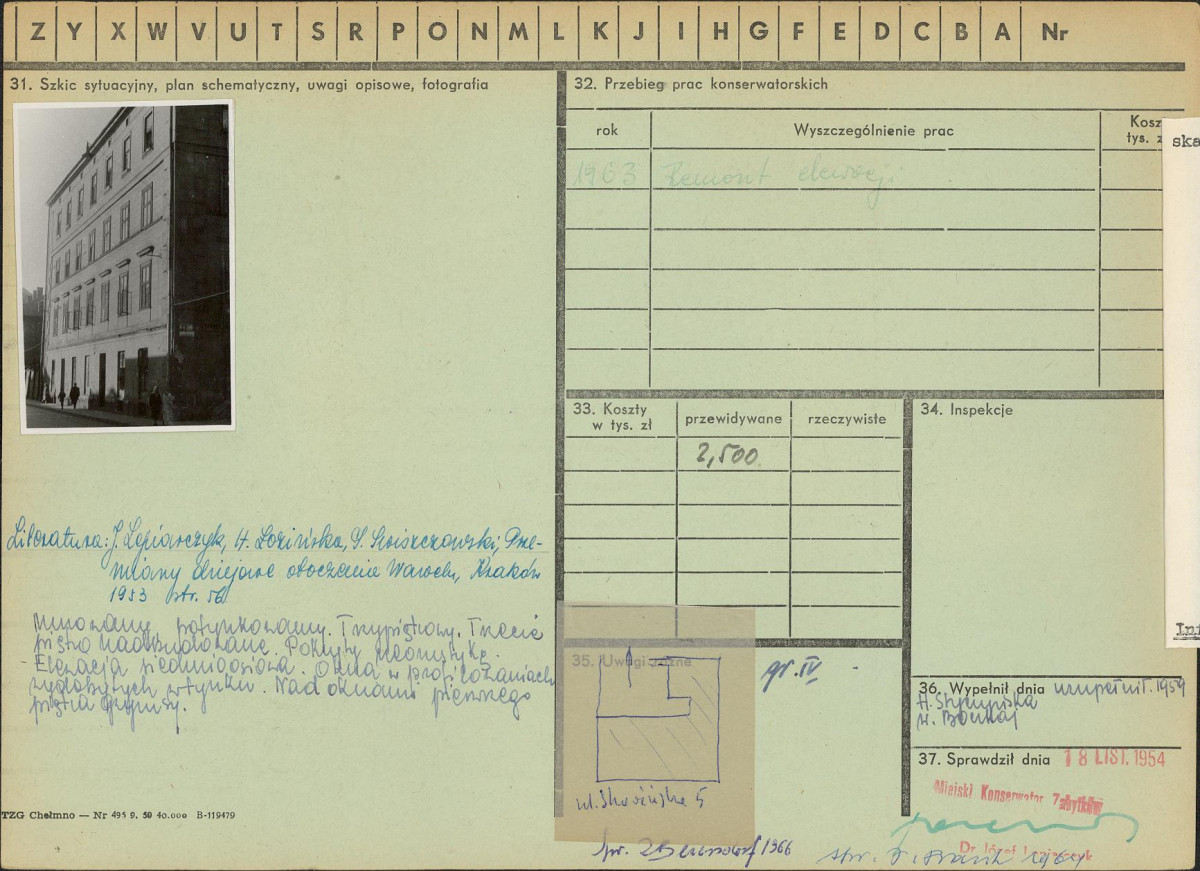 Z Y X W V U T S R P O N M L K J I H G F E D C B A Nr
31. Szkic sytuacyjny, plan schematyczny, uwagi opisowe, fotografia
Literatura: J. Lepiarczyk, H. Łozińska, S. Świszczowski, Prze-
miany dziejowe otoczenia Wawelu, Kraków
1953 str. 56
Murowany, potynkowany. Trzypiętrowy. Trzecie
piętro nadbudowane. Pokryty
Elewacja siedmioosiowa. Okna w profilowaniach
w tynku. Nad oknami pierwszego
piętra gzymsy.
TZG Chełmno — Nr 495 9. 50 40.000 B-119479
32. Przebieg prac konserwatorskich
rok Wyszczególnienie prac Kosz
tys. z
1963 Remont elewacji
33. Koszty
w tys. zł przewidywane rzeczywiste
2,500
34. Inspekcje
35. Uwagi różne
gr. IV
ul. Skawińska 5
1966
36. Wypełnił dnia uzupełnił. 1959
H. Stęczyńska
37. Sprawdził dnia 18 LIST. 1954
Miejski Konserwator Zabytków
Dr Józef Lepiarczyk
1964
ska
Inf